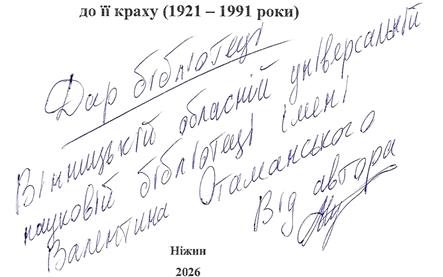 до її краху (1921 – 1991 роки)
Дар бібліотеці
Вінницькій обласній універсальній
науковій бібліотеці імені
Валентина Отаманського
Від автора
Ніжин
2026